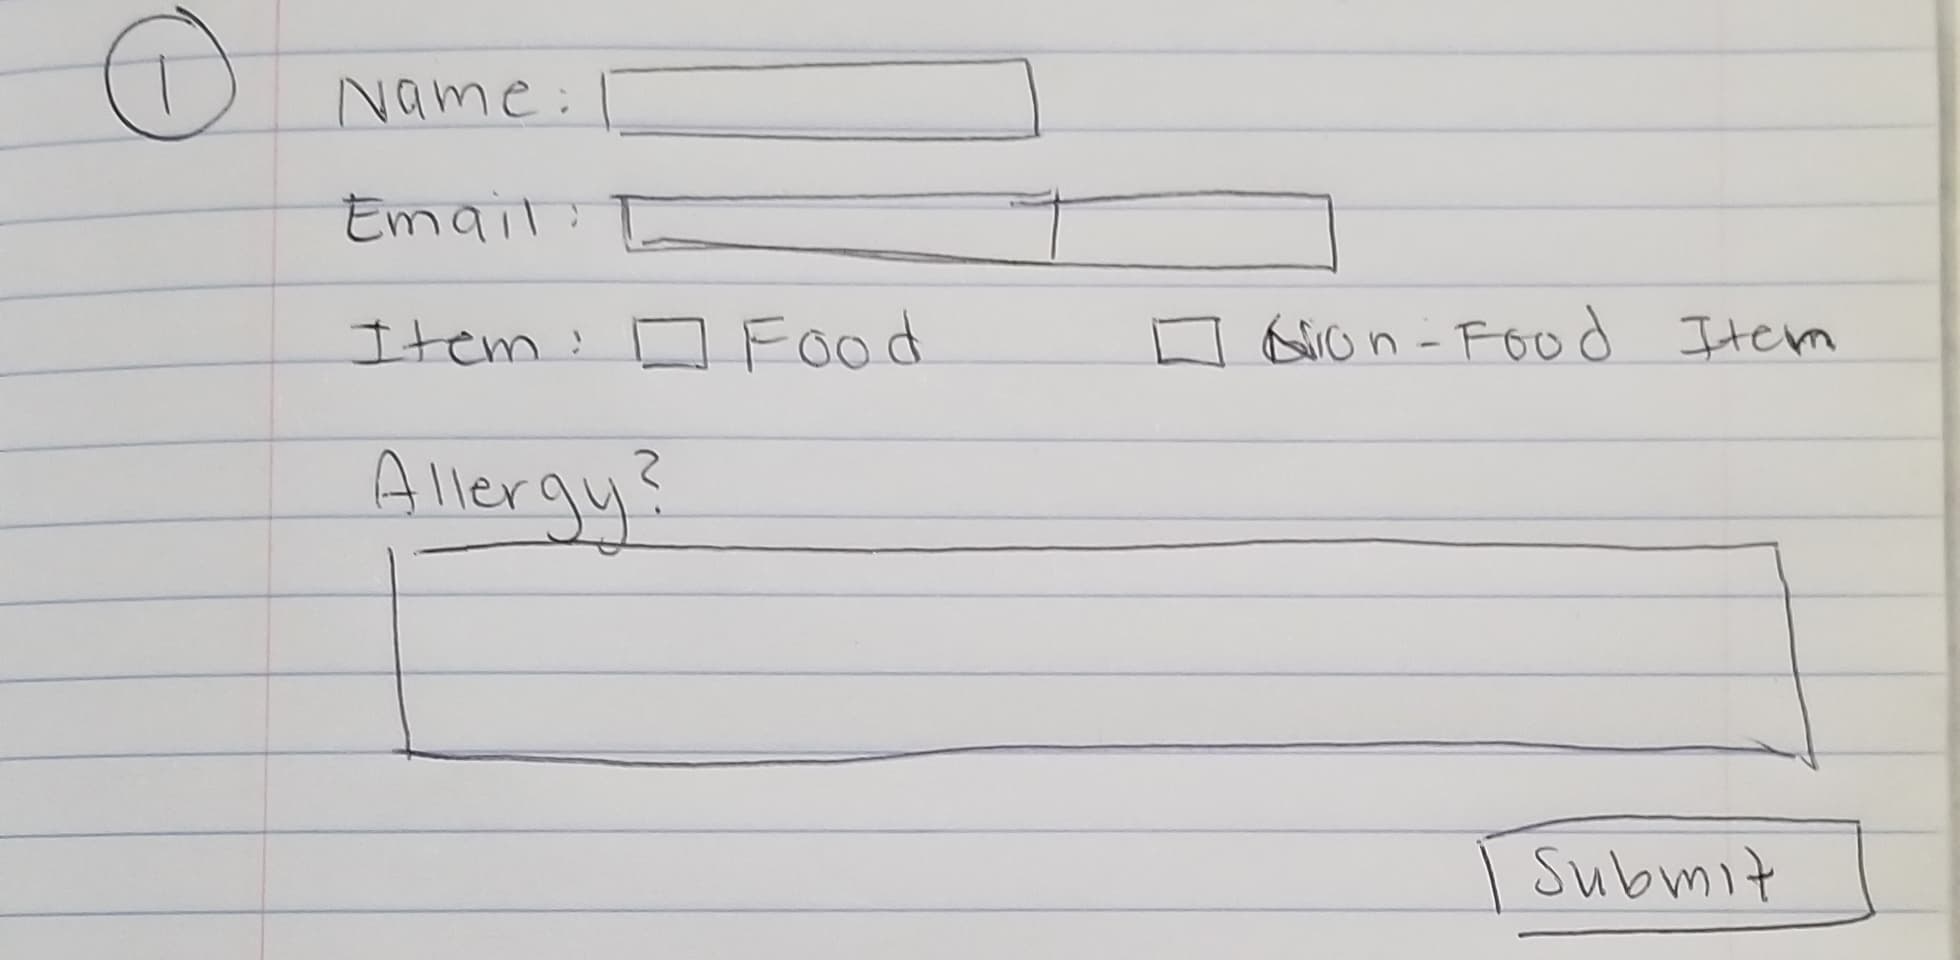 1
Name:
Email:
Item: Food Non-Food Item
Allergy?
Submit